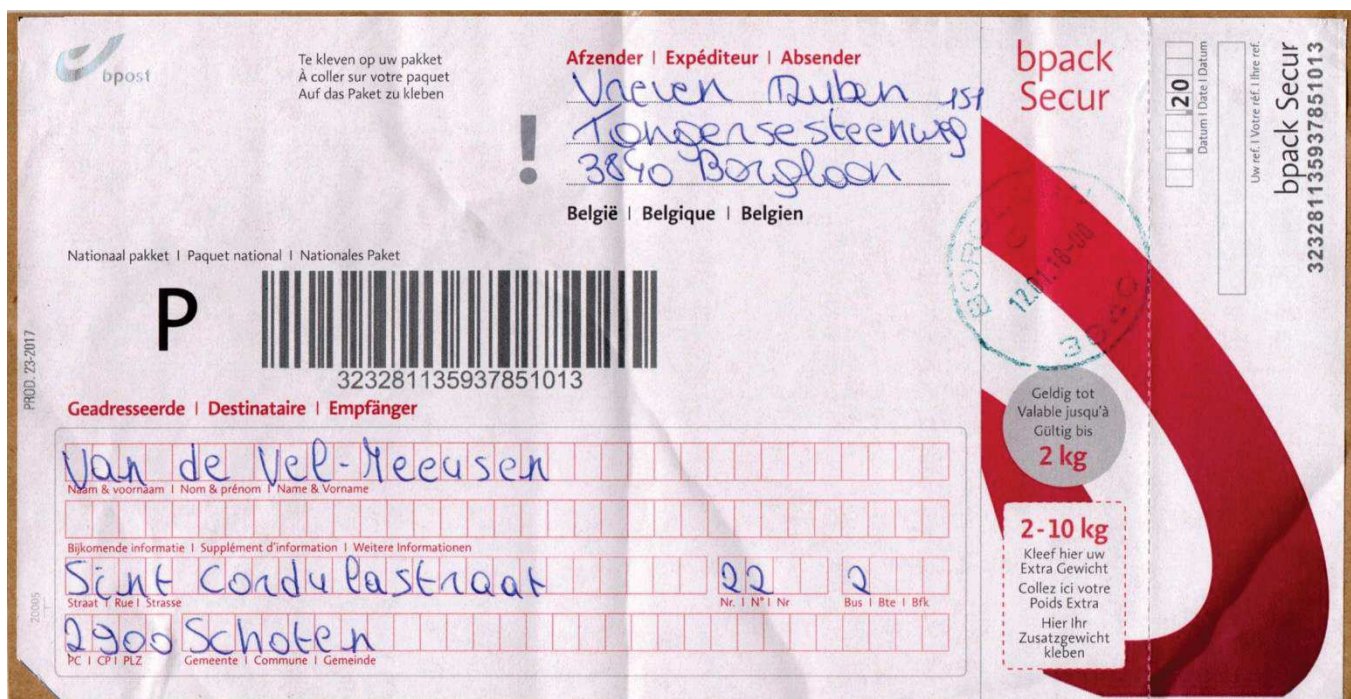 bpost
Te kleven op uw pakket
À coller sur votre paquet
Auf das Paket zu kleben
!
Afzender | Expéditeur | Absender
Vreven Ruben 151
Tongersesteenweg
3840 Borgloon
België | Belgique | Belgien
Nationaal pakket | Paquet national | Nationales Paket
P
323281135937851013
PROD. 23-2017
20005
Geadresseerde | Destinataire | Empfänger
Van de Vel-Meeusen
Naam & voornaam | Nom & prénom | Name & Vorname
Bijkomende informatie | Supplément d'information | Weitere Informationen
Sint Cordulastraat 22 2
Straat | Rue | Strasse Nr. | N° | Nr Bus | Bte | Bfk
2900 Schoten
PC | CP | PLZ Gemeente | Commune | Gemeinde
bpack
Secur
12.01.18-00
3840
Geldig tot
Valable jusqu'à
Gültig bis
2 kg
2-10 kg
Kleef hier uw
Extra Gewicht
Collez ici votre
Poids Extra
Hier Ihr
Zusatzgewicht
kleben
20
Datum | Date | Datum
Uw ref. | Votre réf. | Ihre ref.
bpack Secur
323281135937851013